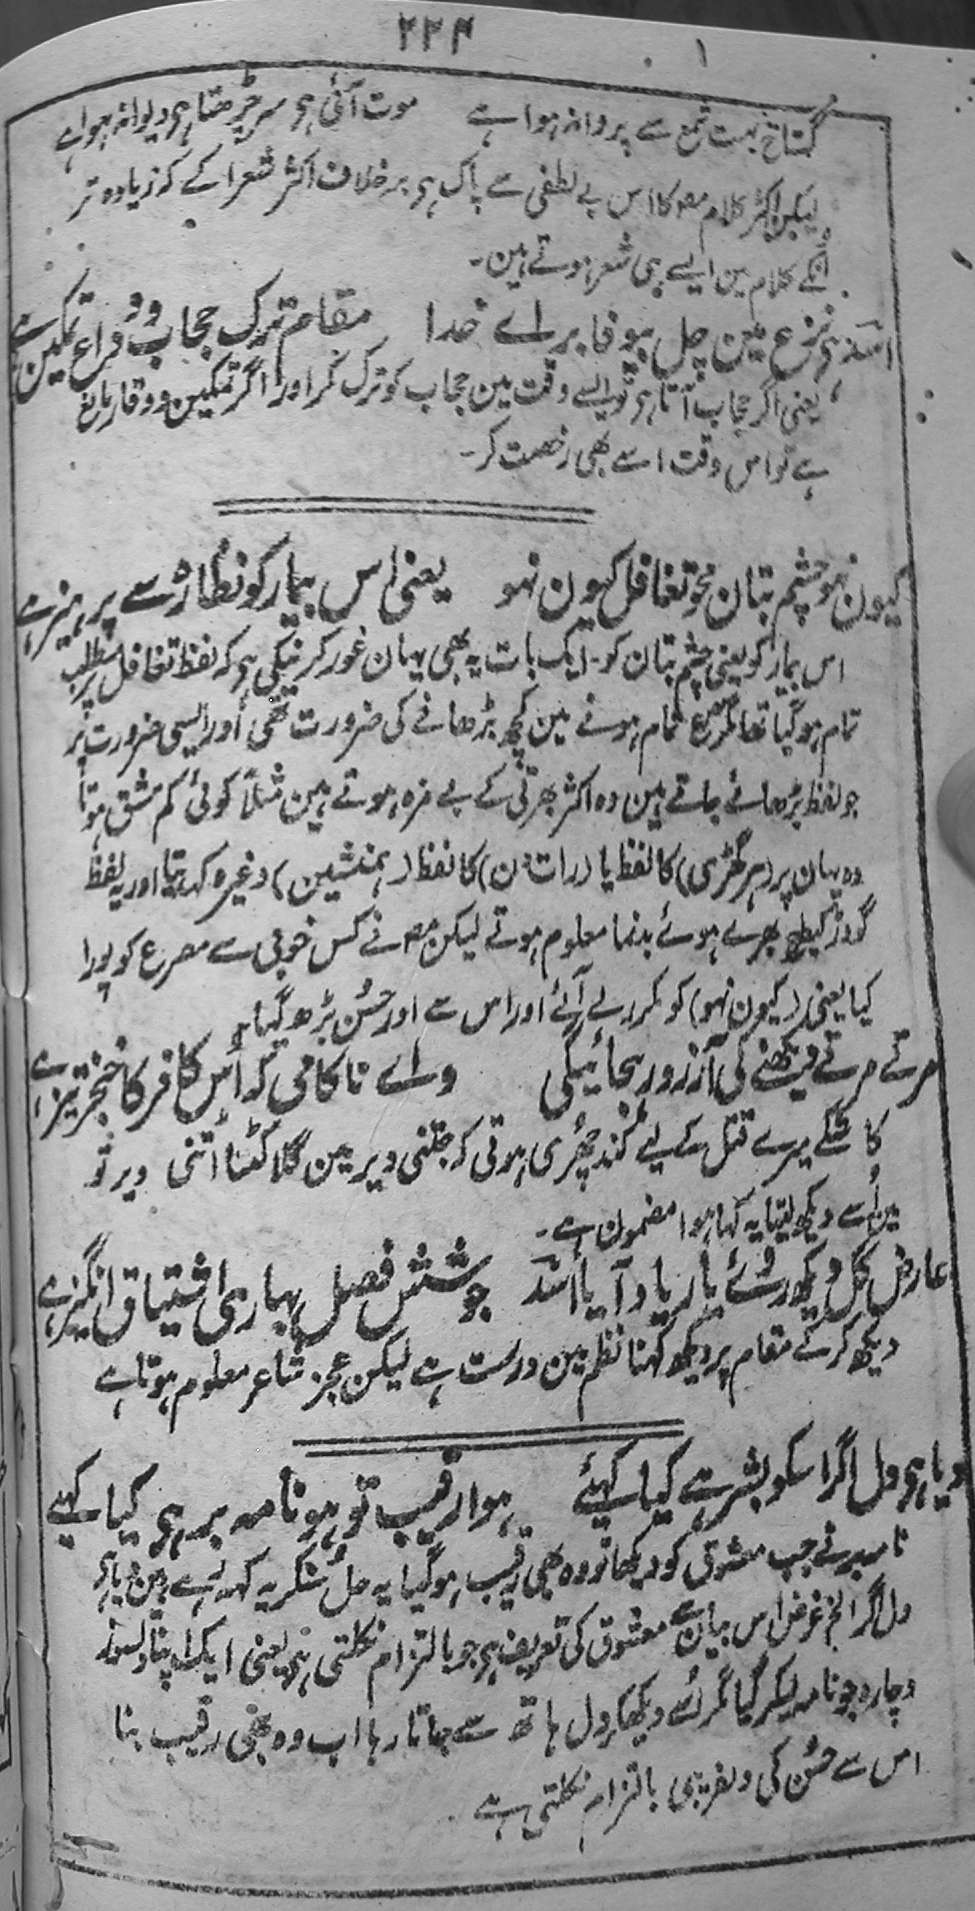 ۲۲۴
گستاخ بہت شمع سے پروانہ ہوا ہے موت آئی ہی سر چڑھتا ہی دیوانہ ہوا ہے
لیکن اکثر کلام مصہ کا اس بے لطفی سے پاک ہی برخلاف اکثر شعرا کے کہ زیادہ تر
اُنکے کلام مین ایسے ہی شعر ہوتے ہین۔
اسد ہی نزع مین چل بیوفا برائے خدا مقام ترک حجاب و وداع تمکین ہے
یعنی اگر حجاب آتا ہی تو ایسے وقت مین حجاب کو ترک کر اور اگر تمکین و وقار مانع
ہے تو اس وقت اسے بھی رخصت کر۔
کیون نہو چشم بتان محو تغافل کیون نہو یعنی اس بیمار کو نظارہ سے پرہیز ہے
اس بیمار کو یعنی چشم بتان کو۔ ایک بات یہ بھی یہان غور کرنیکی ہی کہ لفظ تغافل پر مطلب
تمام ہو گیا تھا مگر مصرع تمام ہونے مین کچھ بڑھانے کی ضرورت تھی اور ایسی ضرورت پر
جو لفظ بڑھائے جاتے ہین وہ اکثر بھرتی کے بے مزہ ہوتے ہین مثلاً کوئی کم مشق ہوتا
وہ یہان پر (ہر گھڑی) کا لفظ یا (رات دن) کا لفظ (ہمنشین) وغیرہ کہدیتا اور یہ لفظ
گودڑ کیطرح بھرے ہوئے بدنما معلوم ہوتے لیکن مصہ نے کس خوبی سے مصرع کو پورا
کیا یعنی (کیون نہو) کو مکرر لے آئے اور اس سے اور حسُن بڑھ گیا۔
مرتے مرتے دیکھنے کی آرزو رہجائیگی وائے ناکامی کہ اُس کافر کا خنجر تیز ہے
کاشکے میرے قتل کے لیے کُند چُھری ہوتی کہ جتنی دیر مین گلا کٹتا اُتنی دیر تو
مین اُسے دیکھ لیتا یہ کہا ہوا مضمون ہے۔
عارض گل دیکھ روئے یار یاد آیا اسد جوشش فصل بہاری اشتیاق انگیز ہے
دیکھ کر کے مقام پر دیکھ کہنا نظم مین درست ہے لیکن عجز شاعر معلوم ہوتا ہے
دیا ہی دل اگر اسکو بشر ہے کیا کہئے ہوا رقیب تو ہو نامہ بر ہی کیا کہیے
نامبر نے جب معشوق کو دیکھا تو وہ بھی رقیب ہو گیا یہ حال سُنکر یہ کہہ رہے ہین دیا ہی
دل اگر الخ غرض اس بیان سے معشوق کی تعریف ہی جو بالتزام نکلتی ہی یعنی ایک اپنا دلسوز
و چارہ جو نامہ لیکر گیا مگر اُسے دیکھکر دل ہاتھ سے جاتا رہا اب وہ بھی رقیب بنا
اس سے حسُن کی دلفریبی بالتزام نکلتی ہے